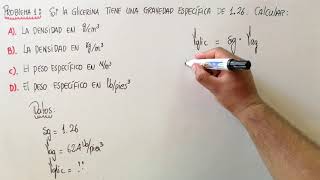 PROBLEMA 1: Si LA GLICERINA TIENE UNA GRAVEDAD ESPECÍFICA DE 1.26. CALCULAR:
A). LA DENSIDAD EN g/cm³
B). LA DENSIDAD EN Kg/m³
C). EL PESO ESPECÍFICO EN N/m³
D). EL PESO ESPECÍFICO EN lb/pies³
Datos:
Sg = 1.26
γag = 62.4 lb/pies³
γglic = ??
γglic = Sg · γag